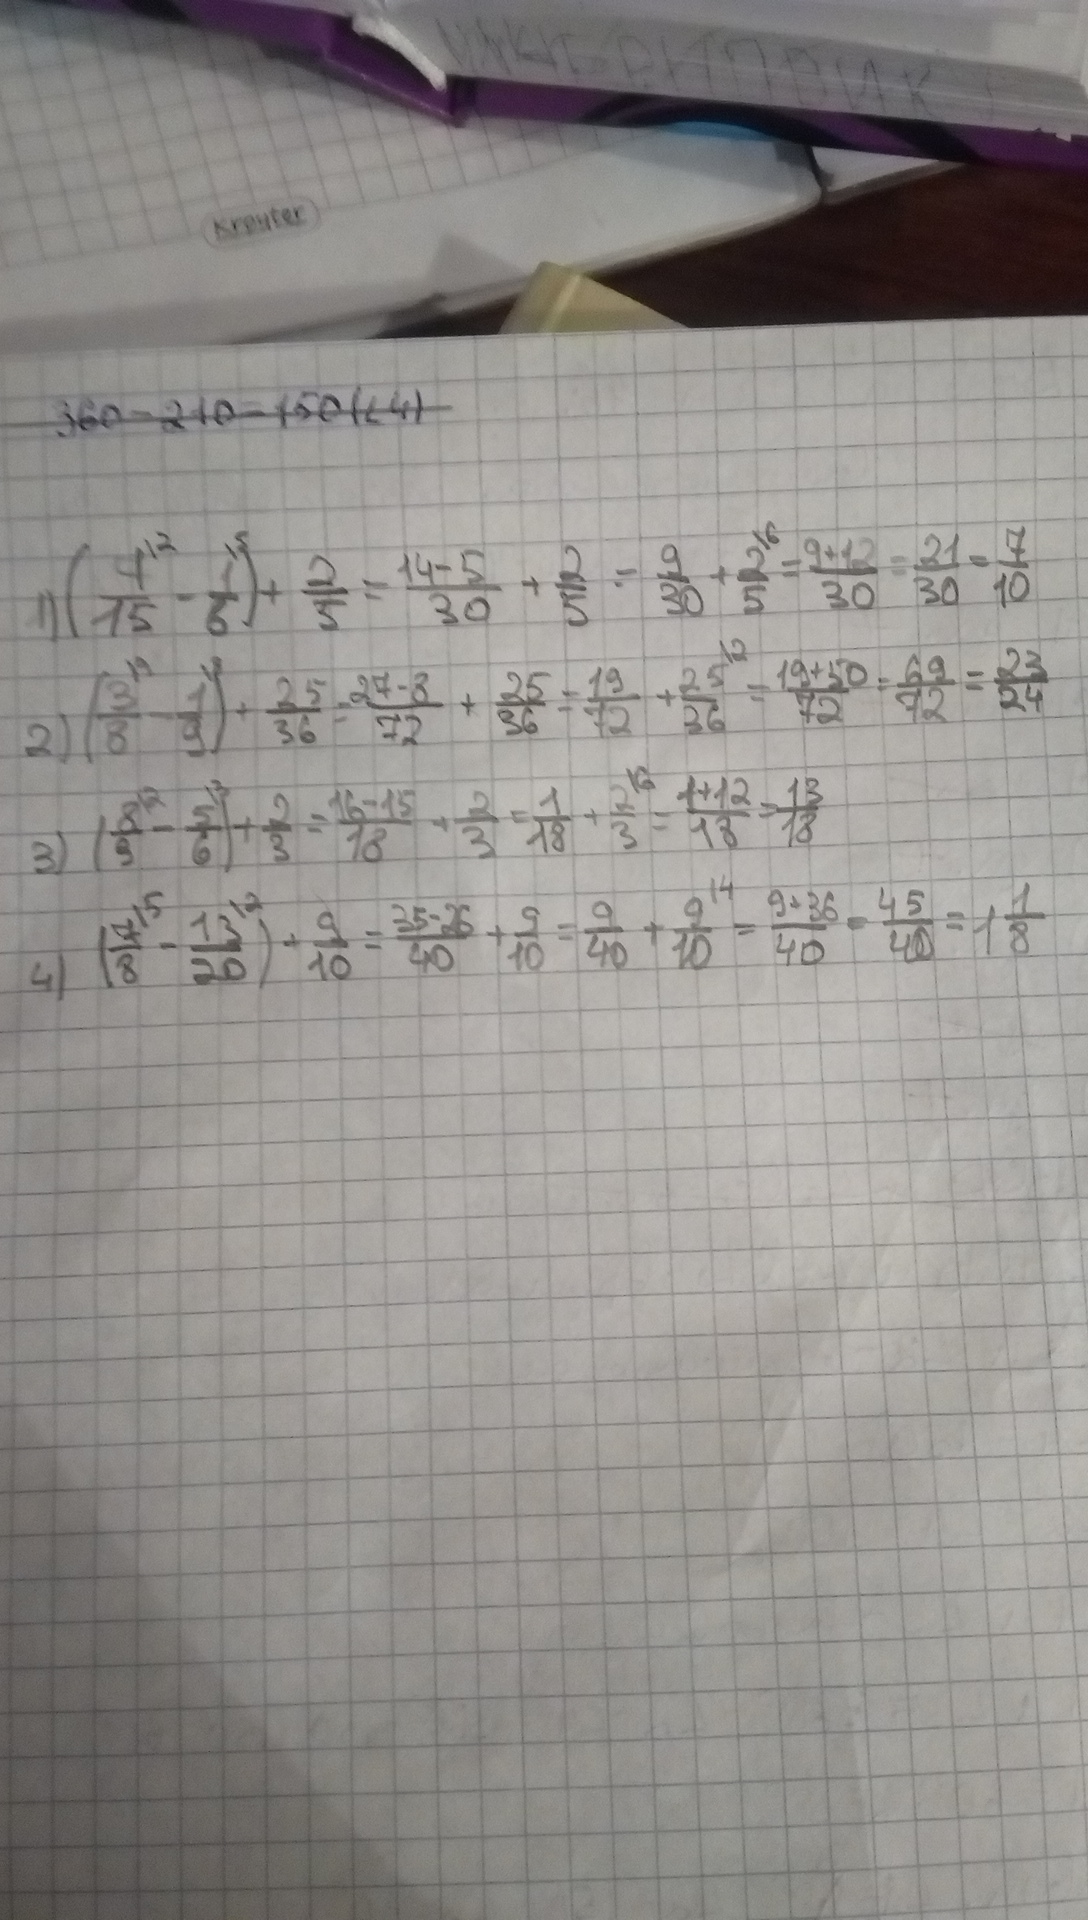 Kreuter
360 - 210 = 150 (с 4)
1) (7\2/15 - 1\5/6) + 2/5 = 14-5/30 + 2/5 = 9/30 + 2\6/5 = 9+12/30 = 21/30 = 7/10
2) (3\9/8 - 1\8/9) + 25/36 = 27-8/72 + 25/36 = 19/72 + 25\2/36 = 19+50/72 = 69/72 = 23/24
3) (8\2/9 - 5\3/6) + 2/3 = 16-15/18 + 2/3 = 1/18 + 2\6/3 = 1+12/18 = 13/18
4) (7\5/8 - 13\2/20) + 9/10 = 35-26/40 + 9/10 = 9/40 + 9\4/10 = 9+36/40 = 45/40 = 1 1/8